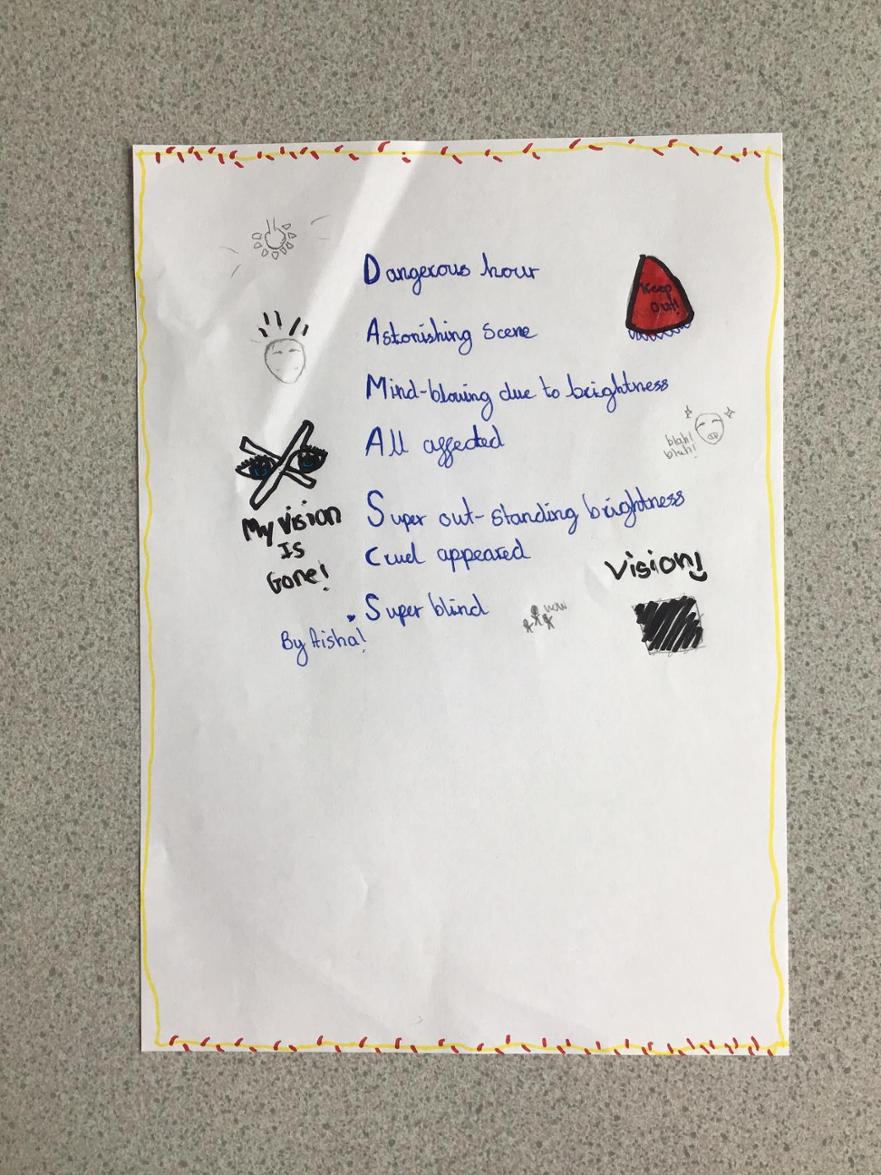 Dangerous hour
Keep
Out!
Astonishing scene
Mind-blowing due to brightness
All affected
blah!
bluh!
Super out-standing brightness
My vision
Is
Gone!
Cruel appeared
Vision!
Super blind
By Aisha!